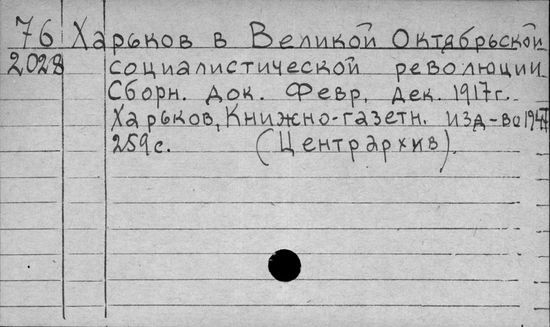 76 Харьков в Великой Октябрьской
2028 социалистической революции.
Сборн. док. Февр. дек. 1917г.
Харьков, Книжно-газетн. изд-во
259с. (Центрархив).